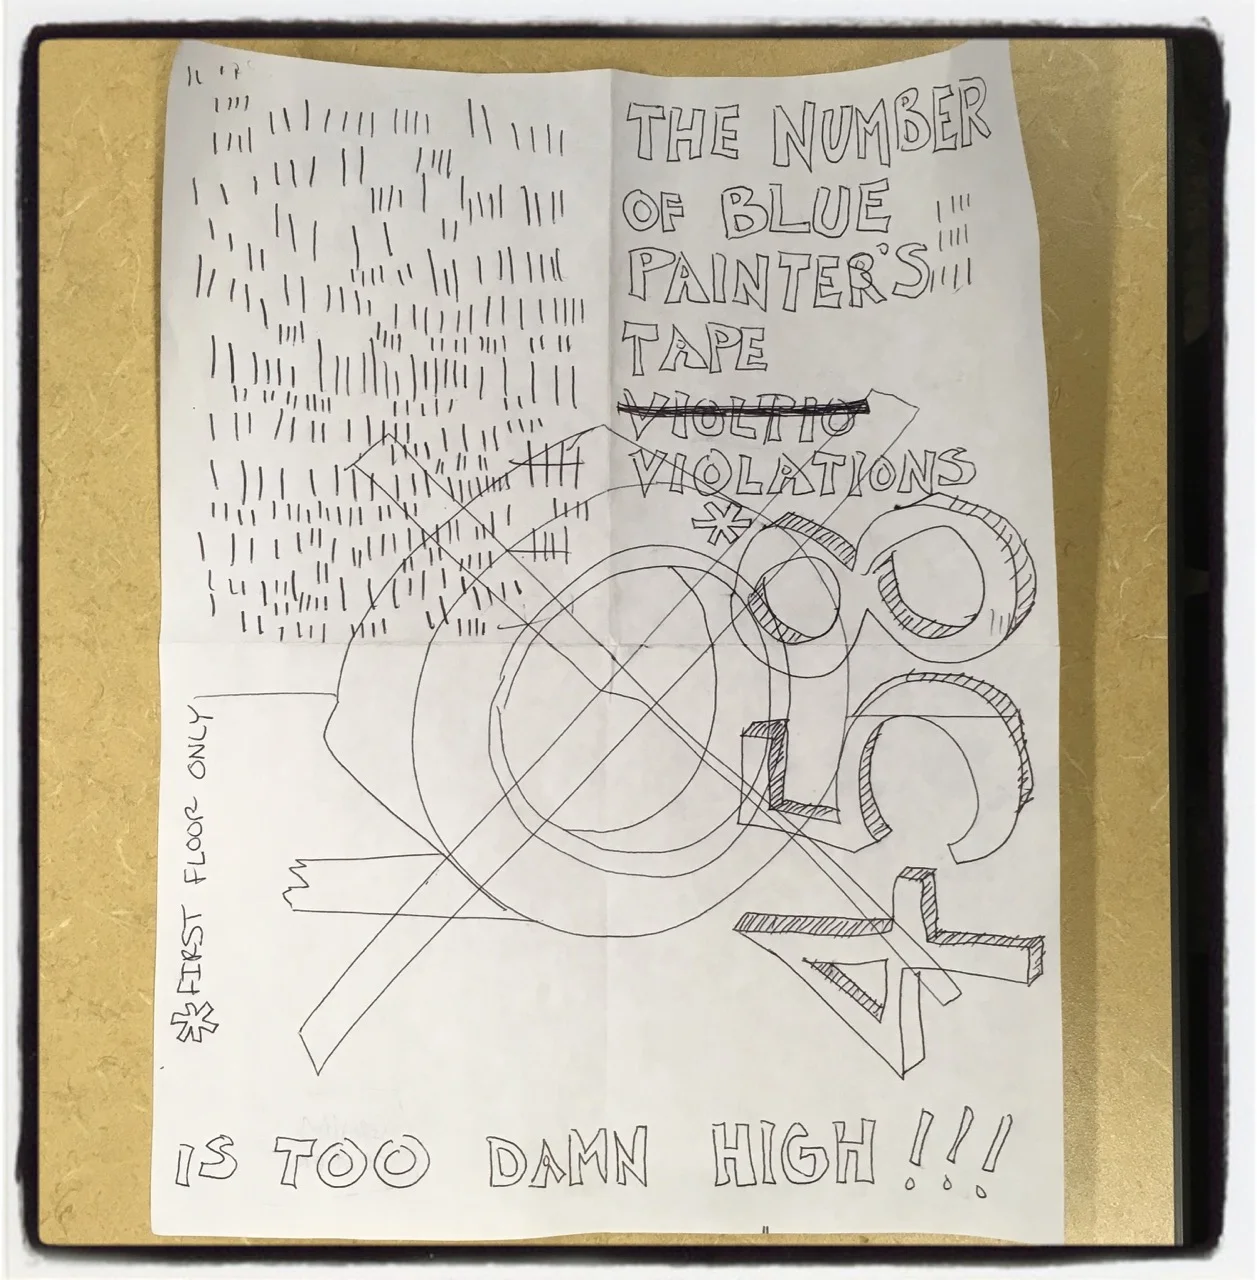 THE NUMBER
OF BLUE
PAINTER'S
TAPE
VIOLATIONS
*
458
*FIRST FLOOR ONLY
IS TOO DAMN HIGH!!!